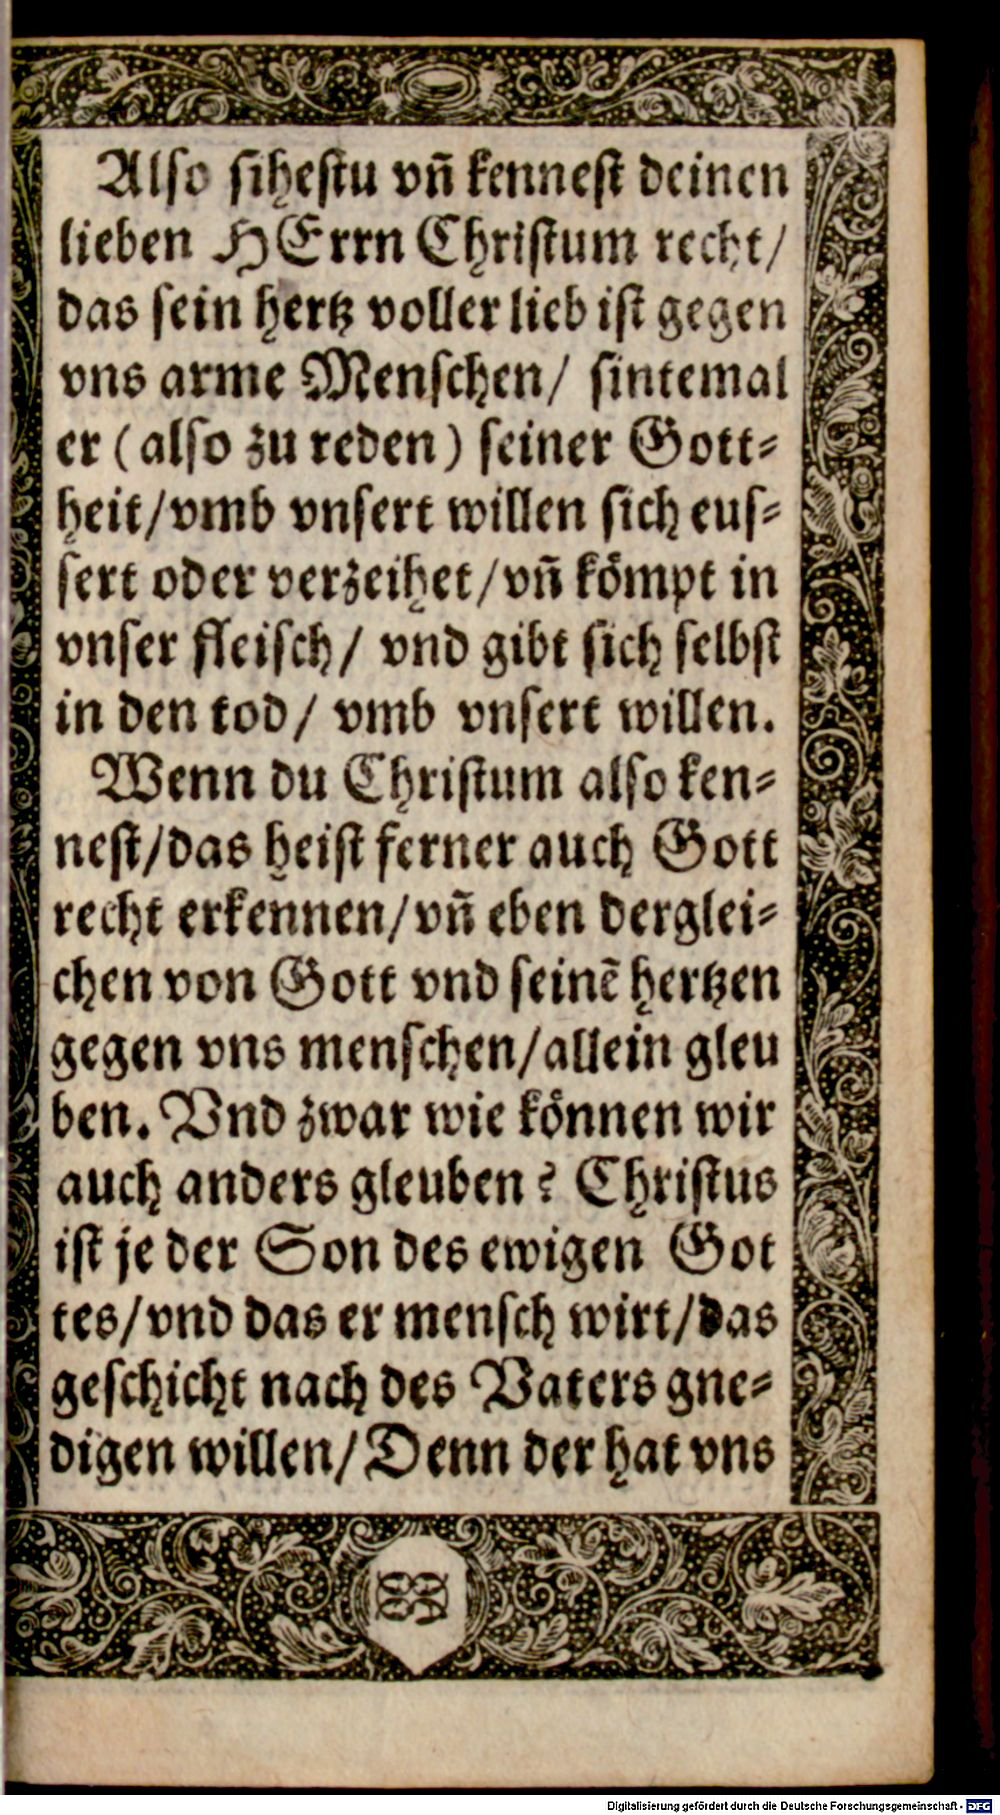 Also sihestu vñ kennest deinen
lieben HErrn Christum recht/
das sein hertz voller lieb ist gegen
vns arme Menschen/ sintemal
er (also zu reden) seiner Gott⸗
heit/vmb vnsert willen sich eus⸗
sert oder verzeihet/vñ kömpt in
vnser fleisch/ vnd gibt sich selbst
in den tod/ vmb vnsert willen.
Wenn du Christum also ken⸗
nest/das heist ferner auch Gott
recht erkennen/vñ eben derglei⸗
chen von Gott vnd seinẽ hertzen
gegen vns menschen/allein gleu
ben. Vnd zwar wie können wir
auch anders gleuben? Christus
ist je der Son des ewigen Got
tes/vnd das er mensch wirt/das
geschicht nach des Vaters gne⸗
digen willen/Denn der hat vns
Digitalisierung gefördert durch die Deutsche Forschungsgemeinschaft - DFG